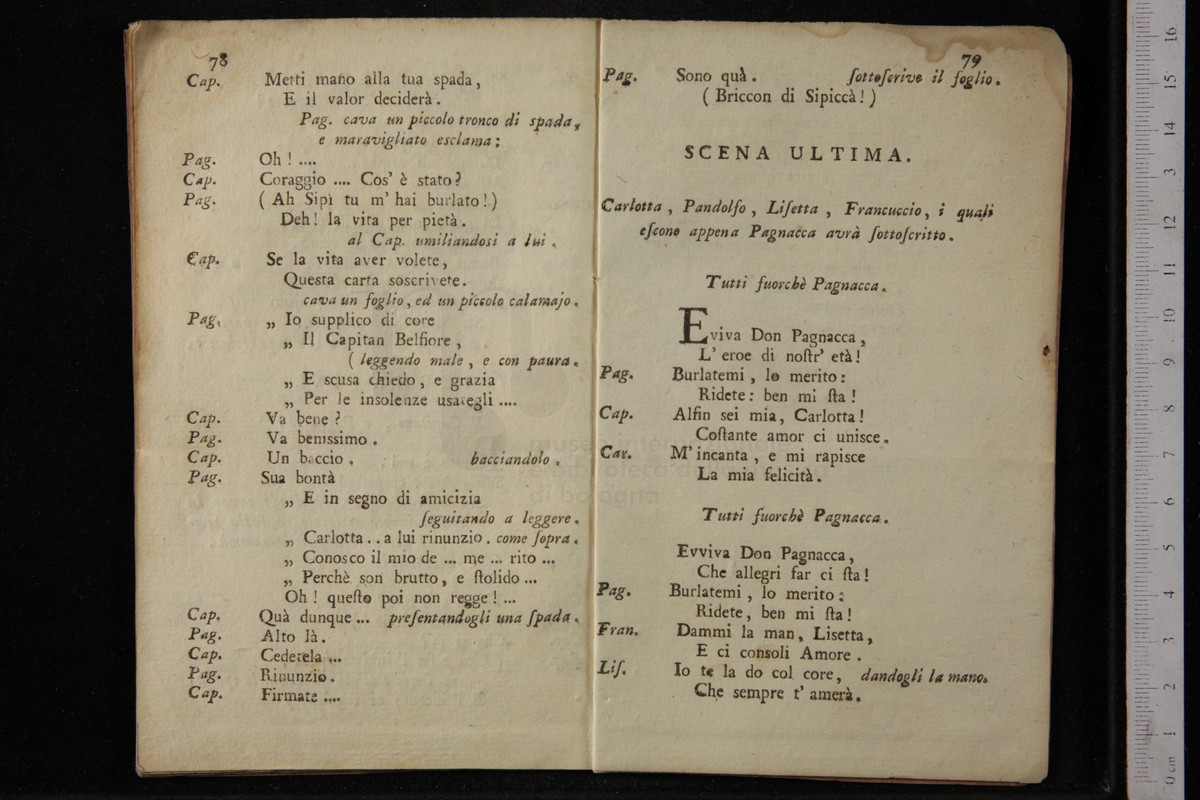 78
Cap. Metti mano alla tua spada,
E il valor deciderà.
Pag. cava un piccolo tronco di spada,
e maravigliato esclama:
Pag. Oh! ....
Cap. Coraggio .... Cos' è stato?
Pag. (Ah Sipì tu m' hai burlato!)
Deh! la vita per pietà.
al Cap. umiliandosi a lui.
Cap. Se la vita aver volete,
Questa carta soscrivete.
cava un foglio, ed un piccolo calamajo.
Pag. „ Io supplico di core
„ Il Capitan Belfiore,
( leggendo male, e con paura.
„ E scusa chiedo, e grazia
„ Per le insolenze usategli ....
Cap. Va bene?
Pag. Va benissimo.
Cap. Un baccio. bacciandolo.
Pag. Sua bontà
„ E in segno di amicizia
ſeguitando a leggere.
„ Carlotta .. a lui rinunzio. come ſopra.
„ Conosco il mio de ... me ... rito ...
„ Perchè son brutto, e ſtolido ...
Oh! queſto poi non regge! ...
Cap. Quà dunque ... preſentandogli una ſpada.
Pag. Alto là.
Cap. Cedetela ...
Pag. Rinunzio.
Cap. Firmate ....
79
Pag. Sono quà. ſottoſcrive il foglio.
(Briccon di Sipiccà!)
SCENA ULTIMA.
Carlotta, Pandolfo, Liſetta, Francuccio, i quali
eſcono appena Pagnacca avrà ſottoſcritto.
Tutti fuorchè Pagnacca.
Eviva Don Pagnacca,
L' eroe di noſtr' età!
Pag. Burlatemi, lo merito:
Ridete: ben mi ſta!
Cap. Alfin sei mia, Carlotta!
Coſtante amor ci unisce.
Car. M' incanta, e mi rapisce
La mia felicità.
Tutti fuorchè Pagnacca.
Evviva Don Pagnacca,
Che allegri far ci ſta!
Pag. Burlatemi, lo merito:
Ridete, ben mi ſta!
Fran. Dammi la man, Lisetta,
E ci consoli Amore.
Liſ. Io te la do col core, dandogli la mano.
Che sempre t' amerà.
museo internazionale
di bologna
0 cm 1 2 3 4 5 6 7 8 9 10 11 12 13 14 15 16